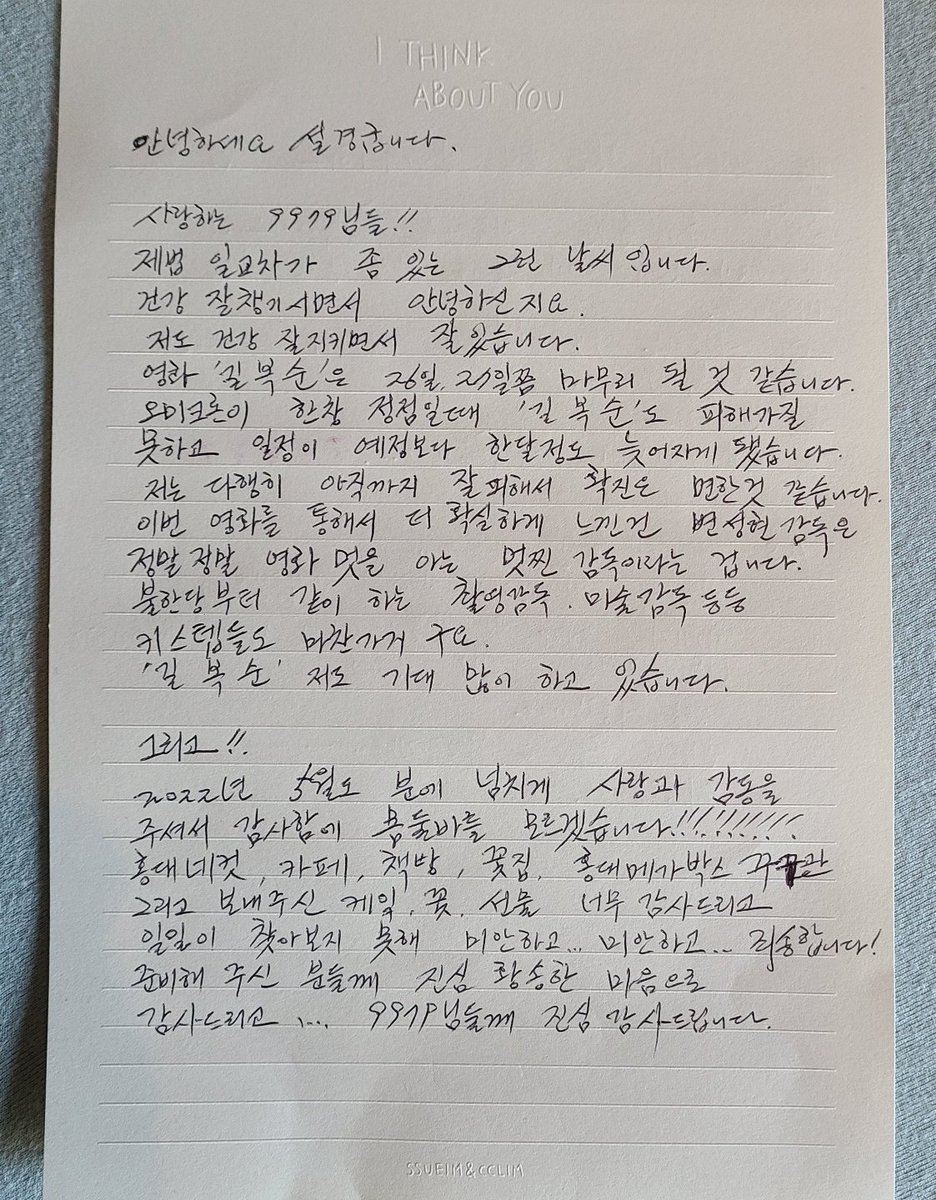 I THINK
ABOUT YOU
안녕하세요 설경굽니다.
사랑하는 9979님들!!
제법 일교차가 좀 있는 그런 날씨입니다.
건강 잘챙기시면서 안녕하신지요.
저도 건강 잘지키면서 잘있습니다.
영화 '길복순'은 26일, 27일쯤 마무리 될 것 같습니다.
오미크론이 한창 정점일때 '길복순'도 피해가질
못하고 일정이 예정보다 한달정도 늦어지게 됐습니다.
저는 다행히 아직까지 잘피해서 확진은 면한것 같습니다.
이번 영화를 통해서 더 확실하게 느낀건 변성현감독은
정말정말 영화 멋을 아는 멋찐 감독이라는 겁니다.
불한당부터 같이 하는 촬영감독. 미술감독 등등
키스텝들도 마찬가지구요.
'길복순' 저도 기대 많이 하고 있습니다.
그리고!!.
2022년 5월도 분에 넘치게 사랑과 감동을
주셔서 감사함에 몸둘바를 모르겠습니다!!!!!!!!!
홍대네컷, 카페, 책방, 꽃집, 홍대메가박스 관
그리고 보내주신 케잌, 꽃, 선물 너무 감사드리고
일일이 찾아보지 못해 미안하고... 미안하고... 죄송합니다!
준비해 주신 분들께 진심 황송한 마음으로
감사드리고.... 9979님들께 진심 감사드립니다.
SSUEIM&CCLIM